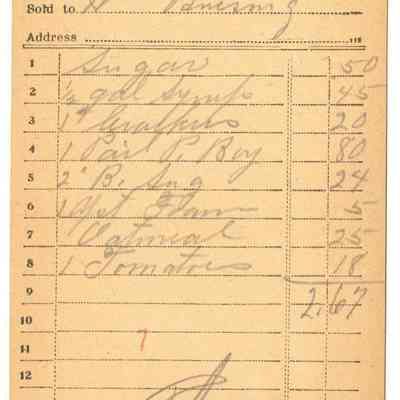 Sold to H
Address
1 Sugar 50
2 ½ gal Syrup 45
3 1" Crackers 20
4 1 Pail P. Boy 80
5 2" B. Sug 24
6 1 Yst Foam 5
7 Oatmeal 25
8 1 Tomatoes 18
9 2.67
10
11 7
12